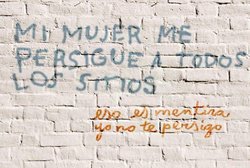 MI MUJER ME
PERSIGUE A TODOS
LOS SITIOS
eso es mentira
yo no te persigo